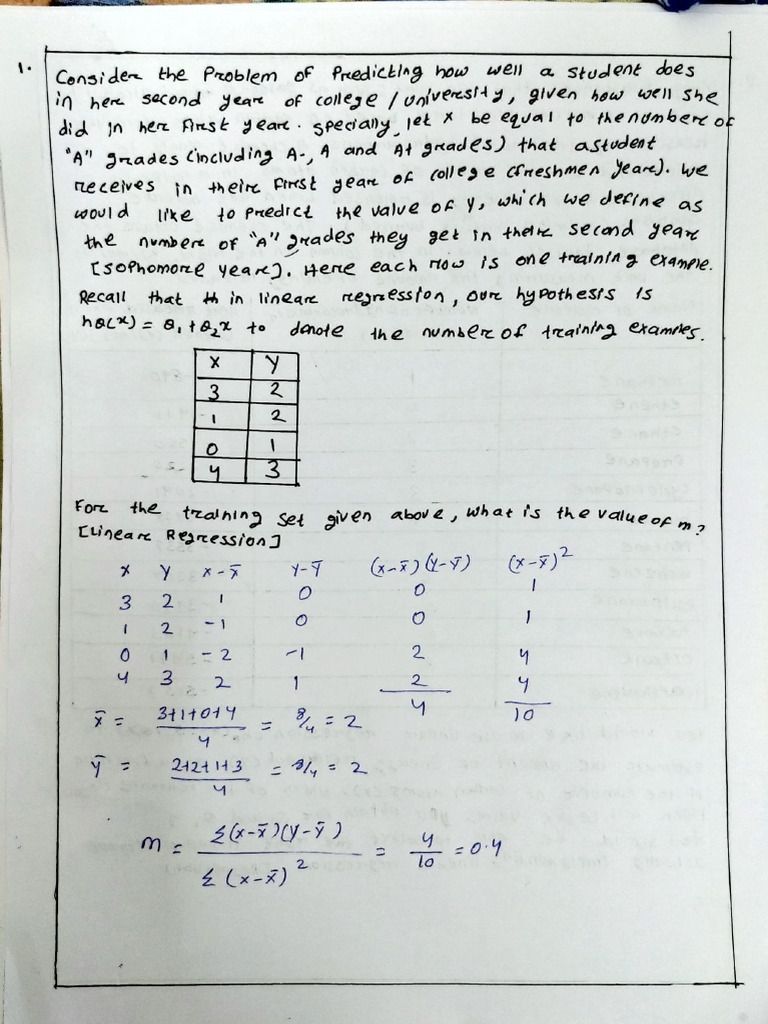 1.
Consider the Problem of Predicting how well a student does
in here second yeare of college / university, given how well she
did in here First yeare. specially, let x be equal to the numbere of
"A" grades (including A-, A and A+ grades) that a student
receives in theire First yeare of college (freshmen yeare). we
would like to predict the value of y, which we define as
the numbere of "A" grades they get in theire second yeare
[sophomore yeare]. Here each row is one training example.
Recall that in lineare regression, oure hypothesis is
hθ(x) = θ₁ + θ₂x to denote the number of training examples.
x y
3 2
1 2
0 1
4 3
Fore the training set given above, what is the value of m?
[Lineare Regression]
x y x-x̄ y-ȳ (x-x̄)(y-ȳ) (x-x̄)²
3 2 1 0 0 1
1 2 -1 0 0 1
0 1 -2 -1 2 4
4 3 2 1 2 4
4 10
x̄ = 3+1+0+4 / 4 = 8/4 = 2
ȳ = 2+2+1+3 / 4 = 8/4 = 2
m = Σ(x-x̄)(y-ȳ) / Σ(x-x̄)² = 4/10 = 0.4